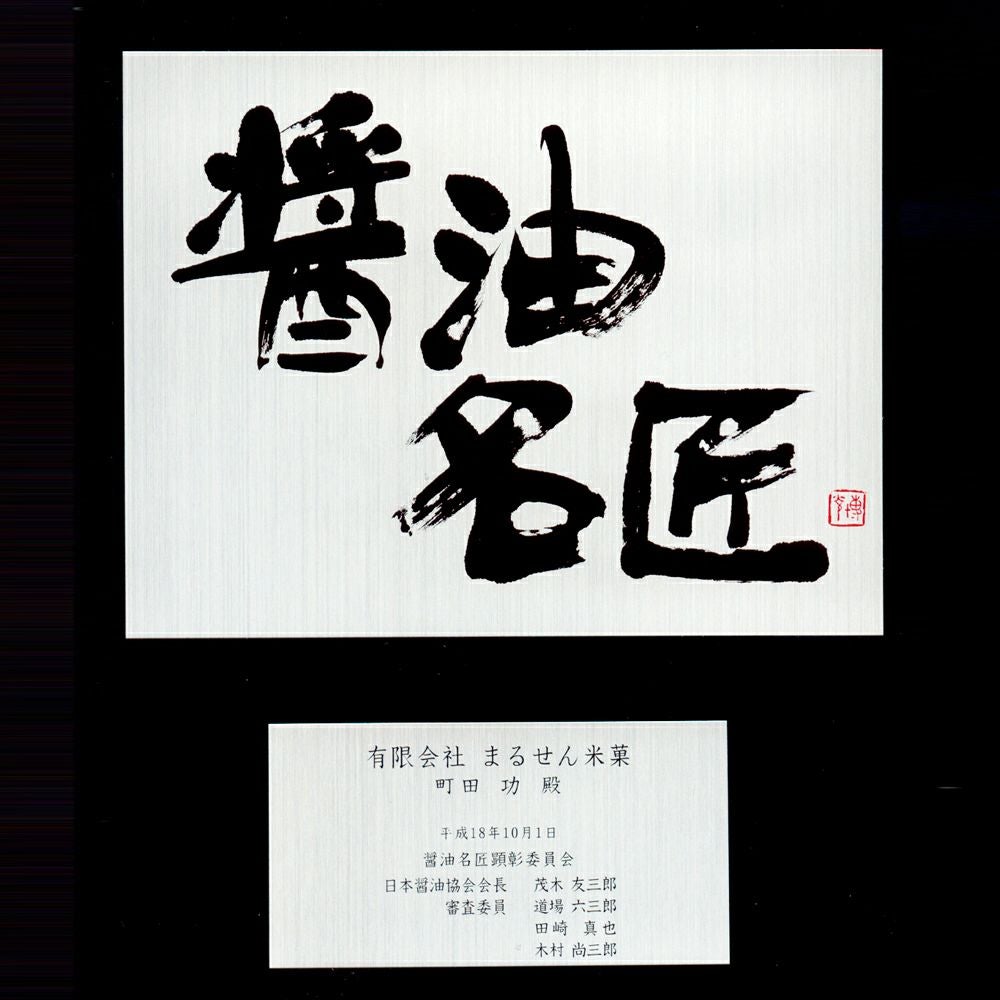 醤油
名匠
有限会社 まるせん米菓
町田 功 殿
平成18年10月1日
醤油名匠顕彰委員会
日本醤油協会会長 茂木 友三郎
審査委員 道場 六三郎
田崎 真也
木村 尚三郎